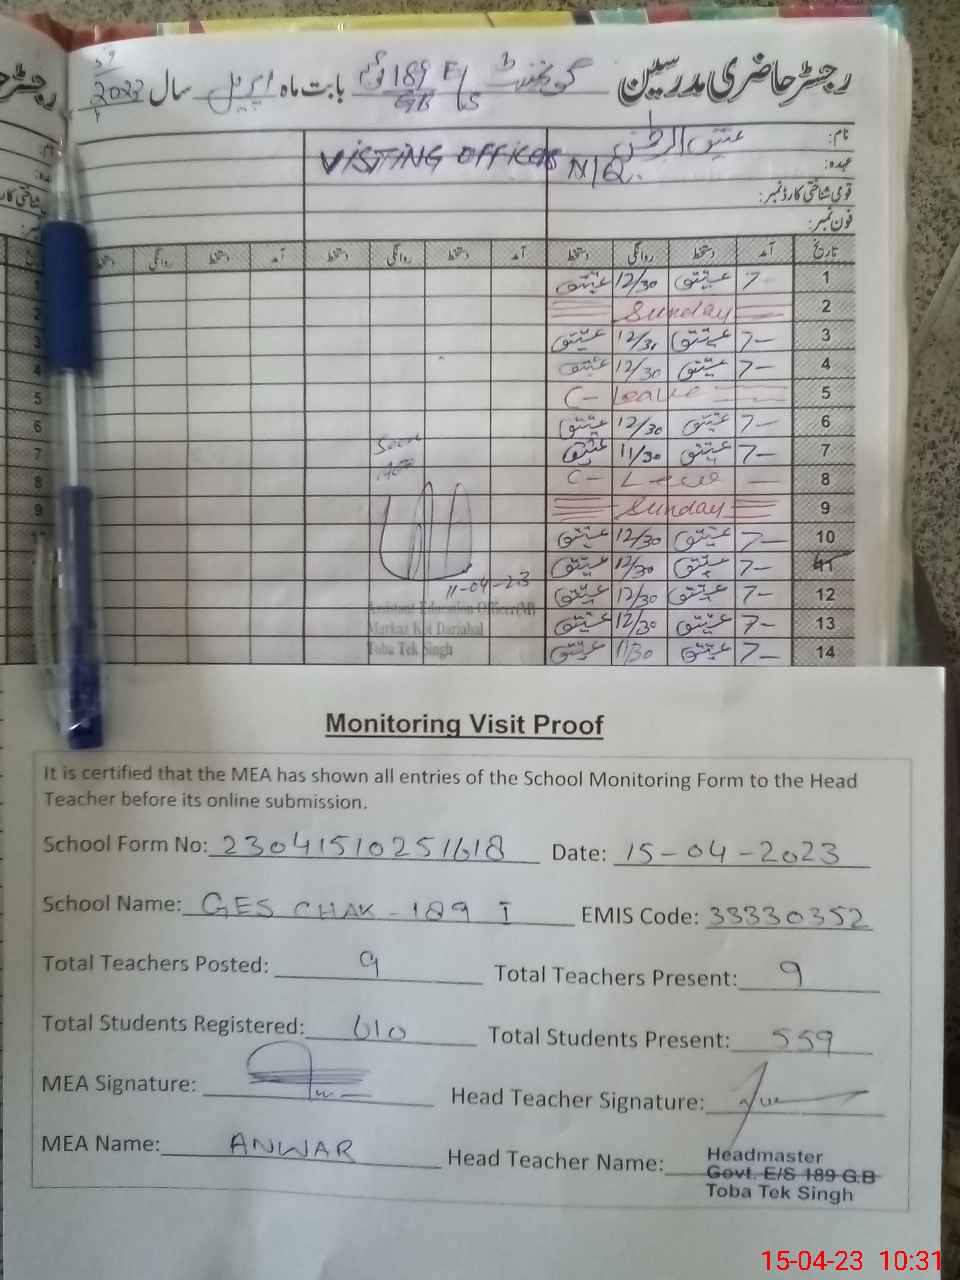 رجسٹر حاضری مدرسین گورنمنٹ E/S 189 گ ب GB بابت ماہ اپریل سال 2023
نام: عتیق الرحمٰن VISITING OFFICER
عہدہ: N/Q.
قومی شناختی کارڈ نمبر:
فون نمبر:
تاریخ آمد دستخط روانگی دستخط آمد دستخط روانگی دستخط آمد دستخط روانگی دستخط
1 7- عتیق 12/30 عتیق
2 Sunday
3 7- عتیق 12/30 عتیق
4 7- عتیق 12/30 عتیق
5 C- Leave
6 7- عتیق 12/30 عتیق
7 7- عتیق 11/30 عتیق
8 C- Leave
9 Sunday
10 7- عتیق 12/30 عتیق
11 7- عتیق 12/30 عتیق
12 7- عتیق 12/30 عتیق
13 7- عتیق 12/30 عتیق
14 7- عتیق 11/30 عتیق
Seen
11-04-23
Assistant Education Officer(M)
Markaz Kot Dariabal
Toba Tek Singh
Monitoring Visit Proof
It is certified that the MEA has shown all entries of the School Monitoring Form to the Head
Teacher before its online submission.
School Form No: 23041510251618 Date: 15-04-2023
School Name: GES CHAK - 189 I EMIS Code: 33330352
Total Teachers Posted: 9 Total Teachers Present: 9
Total Students Registered: 610 Total Students Present: 559
MEA Signature: Head Teacher Signature:
MEA Name: ANWAR Head Teacher Name:
Headmaster
Govt. E/S 189 G.B
Toba Tek Singh
15-04-23 10:31